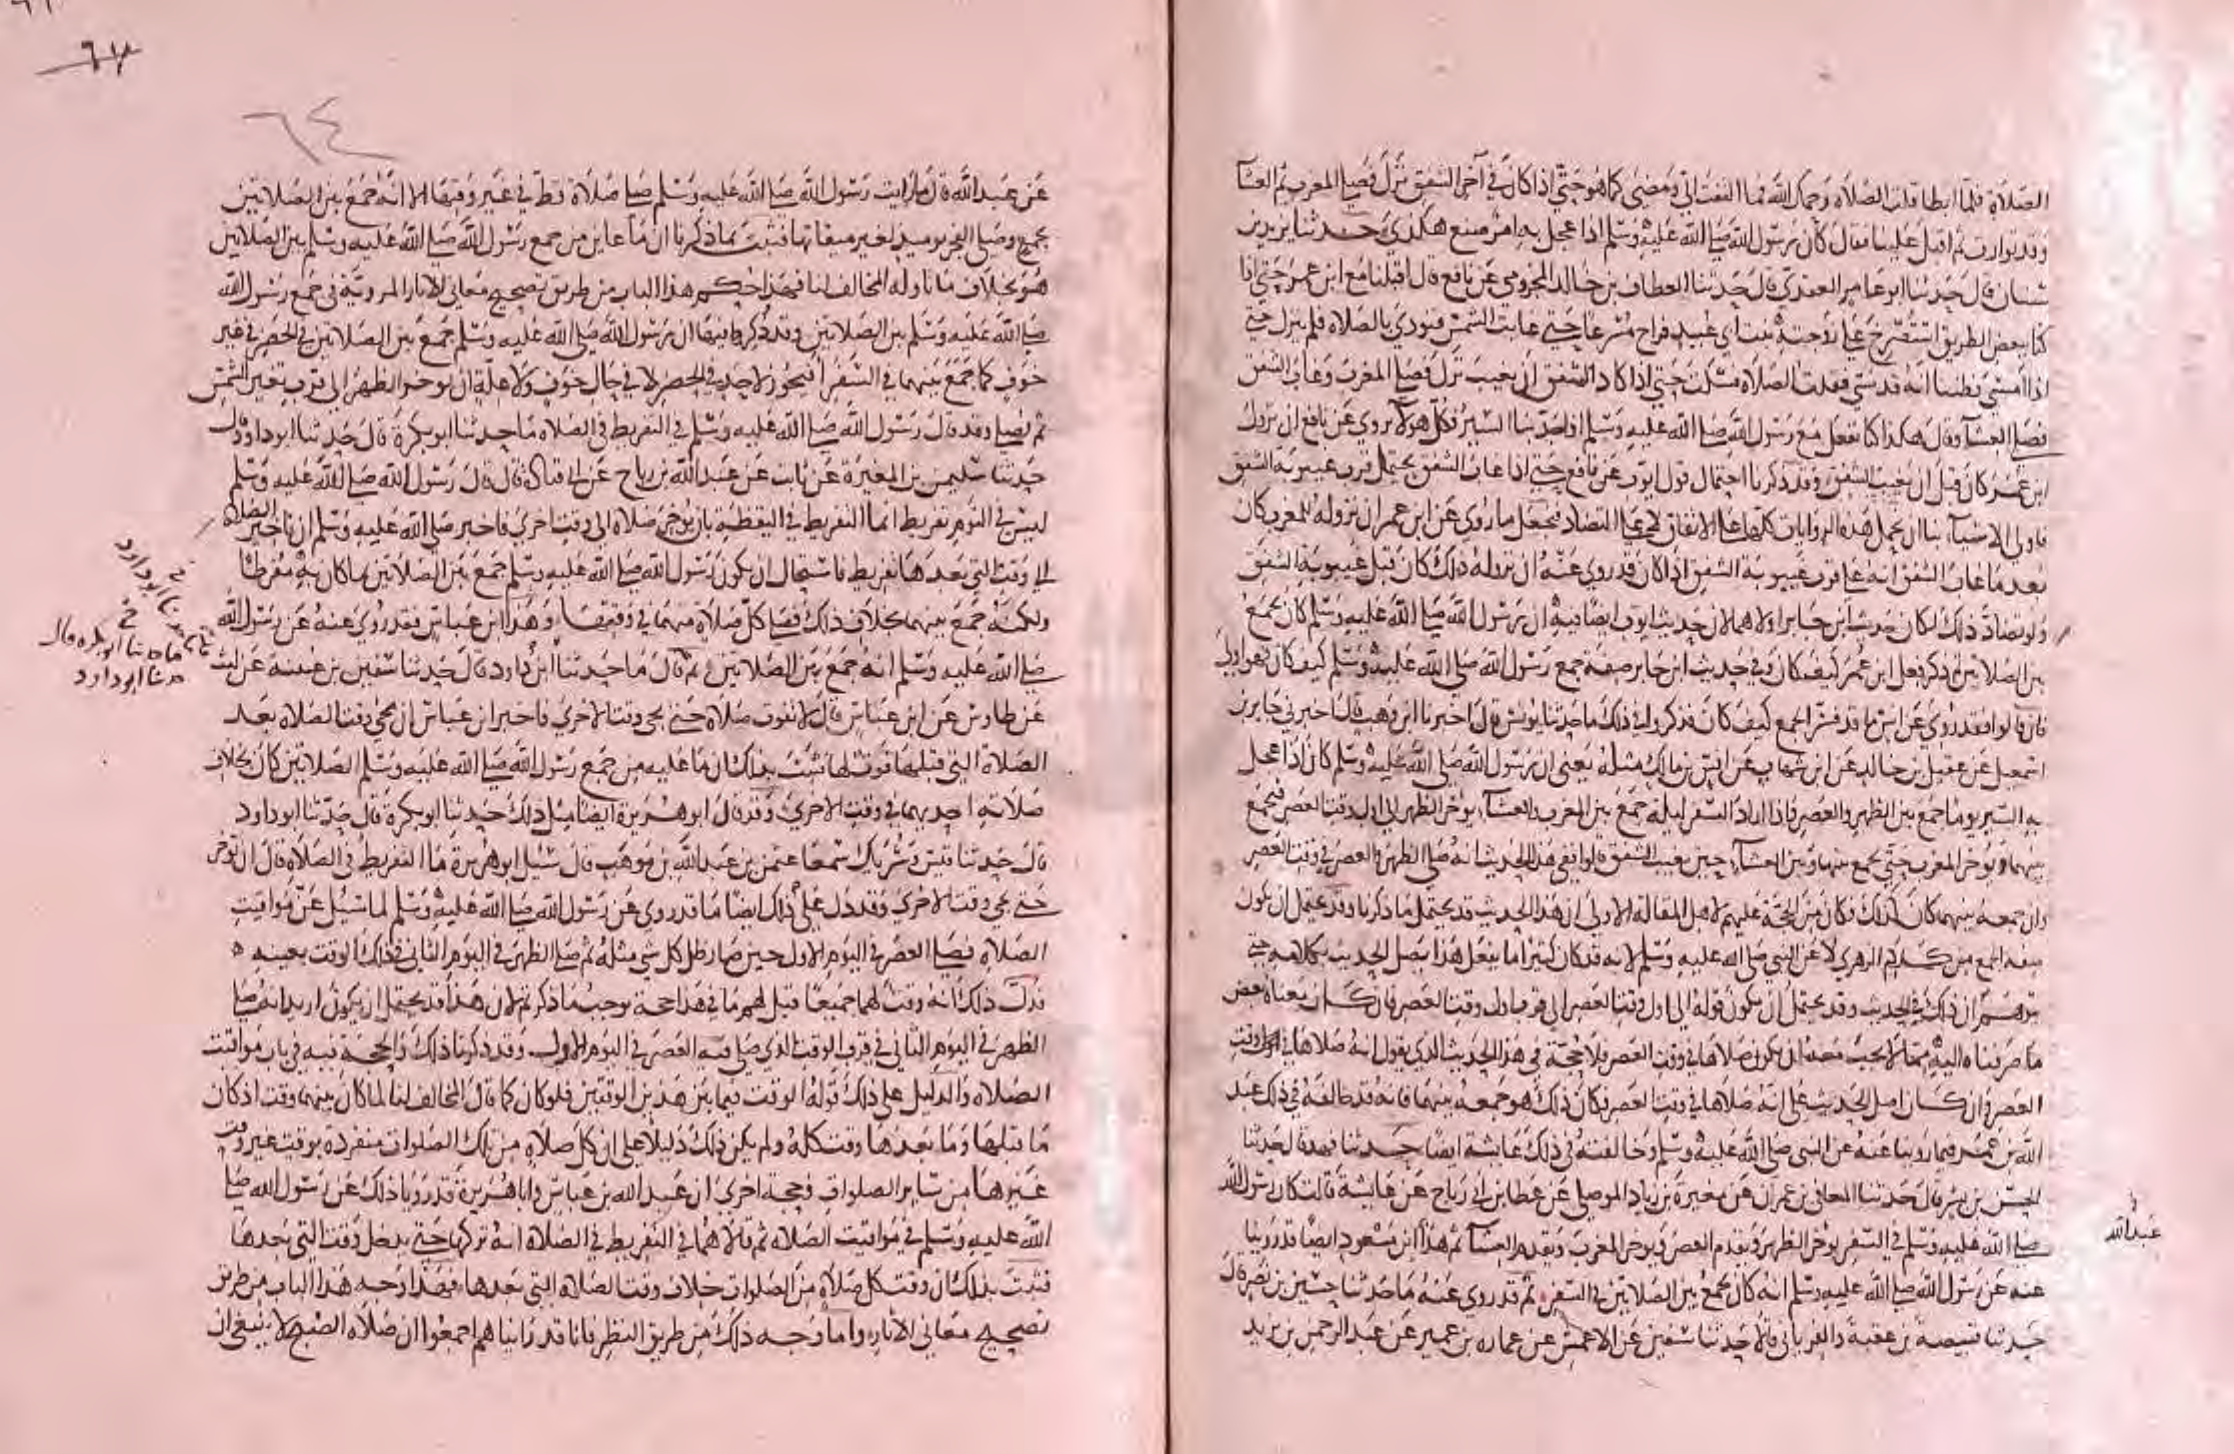 الصلاة فلما ابطا قلت الصلاة رحمك الله فما التفت الي ومضى كما هو حتى اذا كان في آخر الشفق نزل فصلى المغرب ثم العشآ
وقد توارت ثم اقبل علينا فقال كان رسول الله صلى الله عليه وسلم اذا عجل به امر صنع هكذى وحدثنا يزيد بن
سنان قال حدثنا ابو عامر العقدى قال حدثنا العطاف بن خالد المخزومي عن نافع قال اقبلنا مع ابن عمر حتى اذا
كنا ببعض الطريق استصرخ على زوجته بنت ابي عبيد فراح مسرعا حتى غابت الشمس فنودي بالصلاة فلم ينزل حتى
اذا امسى فظننا انه قد نسي فقلت الصلاة فسكت حتى اذا كاد الشفق ان يغيب نزل فصلى المغرب وغاب الشفق
فصلى العشآ وقال هكذا كنا نفعل مع رسول الله صلى الله عليه وسلم اذا جد بنا السير فكل هولآ يروي عن نافع ان نزول
ابن عمر كان قبل ان يغيب الشفق وقد ذكرنا احتمال قول ايوب عن نافع حتى اذا غاب الشفق يحتمل قرب غيبوبة الشفق
فاولى الاشيآ بنا ان يحمل هذه الروايات كلها على الاتفاق لا على التضاد فنجعل ما روي عن ابن عمر ان نزوله للمغرب كان
بعد ما غاب الشفق انه على قرب غيبوبة الشفق اذا كان قد روي عنه ان نزوله ذلك كان قبل غيبوبة الشفق
ولو تضاد ذلك لكان حديث ابن جابر اولاهما لان حديث ايوب ايضا فيه ان رسول الله صلى الله عليه وسلم كان يجمع
بين الصلاتين ثم ذكر فعل ابن عمر كيف كان وفي حديث ابن جابر صفة جمع رسول الله صلى الله عليه وسلم كيف كان فهو اولى
فان قالوا فقد روي عن انس ما قد فسر الجمع كيف كان فذكروا في ذلك ما حدثنا يونس قال اخبرنا ابن وهب قال اخبرني جابر بن
اسمعيل عن عقيل بن خالد عن ابن شهاب عن انس بن مالك مثله يعنى ان رسول الله صلى الله عليه وسلم كان اذا عجل
به السير يوما جمع بين الظهر والعصر واذا اراد السفر ليلة جمع بين المغرب والعشآ، يوخر الظهر الى اول وقت العصر فيجمع
بينهما ويوخر المغرب حتى يجمع بينها وبين العشآء حين يغيب الشفق قالوا ففي هذا الحديث انه صلى الظهر والعصر في وقت العصر
وان جمعه بينهما كان كذلك فكان من الحجة عليهم لاهل المقالة الاولى ان هذا الحديث قد يحتمل ما ذكرنا وقد يحتمل ان يكون
صفة الجمع من كلام الزهري لا عن النبي صلى الله عليه وسلم لانه قد كان كثيرا ما يفعل هذا يصل الحديث بكلامه حتى
يتوهم ان ذلك في الحديث وقد يحتمل ان يكون قوله الى اول وقت العصر الى قرب اول وقت العصر فان كان معناه بعض
ما صرفناه اليه مما لا يجب معه ان يكون صلاها في وقت العصر فلا حجة في هذا الحديث الذي يقول انه صلاها في وقت
العصر وان كان اصل الحديث على انه صلاها في وقت العصر فكان ذلك هو جمعه بينهما فانه قد خالفه في ذلك عبد
الله بن عمر فيما روينا عنه عن النبي صلى الله عليه وسلم وخالفته في ذلك عايشة ايضا حدثنا فهد قال حدثنا
الحسن بن بشر قال حدثنا المعافى بن عمران عن مغيرة بن زياد الموصلي عن عطا بن ابي رباح عن عايشة قالت كان رسول الله
صلى الله عليه وسلم في السفر يوخر الظهر ويقدم العصر ويوخر المغرب ويقدم العشآ ثم هذا ابن مسعود ايضا قد روينا
عبد الله
عنه عن رسول الله صلى الله عليه وسلم انه كان يجمع بين الصلاتين في السفر ثم قد روي عنه ما حدثنا حسين بن نصر قال
حدثنا قبيصة بن عقبة والفريابي قالا حدثنا سفين عن الاعمش عن عماره بن عمير عن عبد الرحمن بن يزيد
٦٣
٦٤
عن عبد الله قال ما رايت رسول الله صلى الله عليه وسلم صلى صلاة قط في غير وقتها الا انه جمع بين الصلاتين
بجمع وصلى الفجر يوميذ لغير ميقاتها فثبت بما ذكرنا ان ما عاين من جمع رسول الله صلى الله عليه وسلم بين الصلاتين
هو بخلاف ما تاوله المخالف لنا فهذا حكم هذا الباب من طريق تصحيح معاني الاثار المروية في جمع رسول الله
صلى الله عليه وسلم بين الصلاتين وقد ذكر فيها ان رسول الله صلى الله عليه وسلم جمع بين الصلاتين في الحضر في غير
خوف كما جمع بينهما في السفر افيجوز لاحد في الحضر لا في حال خوف ولا علة ان يوخر الظهر الى قرب تغير الشمس
ثم يصلي وقد قال رسول الله صلى الله عليه وسلم في التفريط في الصلاة ما حدثنا ابو بكرة قال حدثنا ابو داود قال
حدثنا سليمن بن المغيرة عن ثابت عن عبد الله بن رباح عن ابي قتادة قال قال رسول الله صلى الله عليه وسلم
ليس في النوم تفريط انما التفريط في اليقظة بان يوخر صلاة الى وقت اخرى فاخبر صلى الله عليه وسلم ان تاخير الصلاة
الى وقت التي بعدها تفريط فاستحال ان يكون رسول الله صلى الله عليه وسلم جمع بين الصلاتين بما كان به مفرطا
ولكنه جمع بينهما بخلاف ذلك فصلى كل صلاة منهما في وقتها وهذا ابن عباس فقد روي عنه عن رسول الله
صلى الله عليه وسلم انه جمع بين الصلاتين ثم قال ما حدثنا ابن داود قال حدثنا سفين بن عيينة عن ليث
ما حدثنا ابو بكره قال
حدثنا ابو داود
عن طاوس عن ابن عباس قال لا تفوت صلاة حتى يجى وقت الاخرى فاخبر ابن عباس ان مجي وقت الصلاة بعد
الصلاة التي قبلها فوت لها فثبت بذلك ان ما عليه من جمع رسول الله صلى الله عليه وسلم الصلاتين كان بخلاف
صلاته احديهما في وقت الاخرى وقد قال ابو هريرة ايضا مثل ذلك حدثنا ابو بكرة قال حدثنا ابو داود
قال حدثنا قيس وشريك سمعا عثمن بن عبد الله بن موهب قال سئل ابو هريرة ما التفريط في الصلاة قال ان توخر
حتى يجى وقت الاخرى وقد دل على ذلك ايضا ما قد روي عن رسول الله صلى الله عليه وسلم لما سئل عن مواقيت
الصلاة فصلى العصر في اليوم الاول حين صار ظل كل شي مثله ثم صلى الظهر في اليوم الثاني في ذلك الوقت بعينه ٥
فدل ذلك انه وقت لهما جميعا قيل لهم ما في هذا حجة توجب ما ذكرتم لان هذا قد يحتمل ان يكون اريد به انه صلى
الظهر في اليوم الثاني في قرب الوقت الذي صلى فيه العصر في اليوم الاول وقد ذكرنا ذلك والحجة فيه في باب مواقيت
الصلاة والدليل على ذلك قوله الوقت فيما بين هذين الوقتين فلو كان كما قال المخالف لنا لما كان بينهما وقت اذ كان
ما قبلها وما بعدها وقت كله ولم يكن ذلك دليلا على ان كل صلاة من تلك الصلوات منفردة بوقت غير وقت
غيرها من ساير الصلوات وحجة اخرى ان عبد الله بن عباس وابا هريرة قد رويا ذلك عن رسول الله صلى
الله عليه وسلم في مواقيت الصلاة ثم قالا هما في التفريط في الصلاة انه تركها حتى يدخل وقت التي بعدها
فثبت بذلك ان وقت كل صلاة من الصلوات خلاف وقت الصلاة التي بعدها فهذا وجه هذا الباب من طريق
تصحيح معاني الاثار، واما وجه ذلك من طريق النظر فانا قد راينا هم اجمعوا ان صلاة الصبح لا ينبغي ان